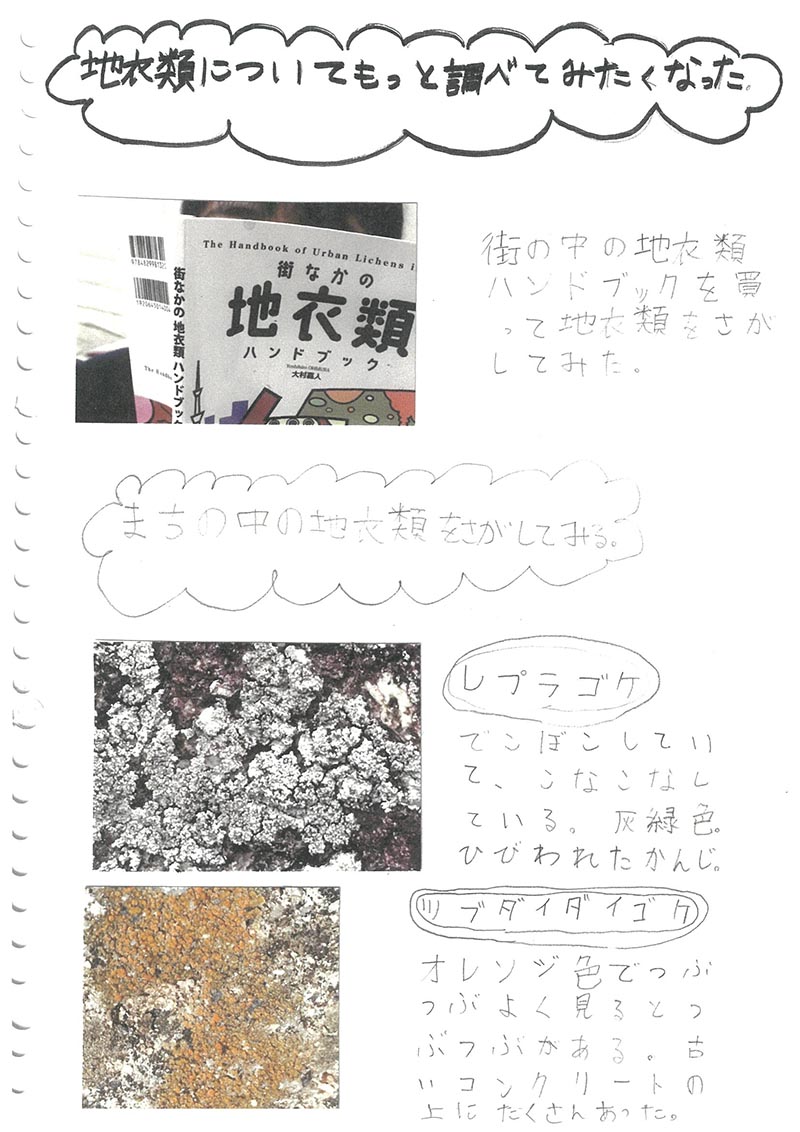 地衣類についてもっと調べてみたくなった。
The Handbook of Urban Lichens i
街なかの
地衣類
ハンドブック
大村嘉人
街なかの 地衣類 ハンドブック
街の中の地衣類
ハンドブックを買
って地衣類をさが
してみた。
まちの中の地衣類をさがしてみる。
レプラゴケ
でこぼこしてい
て、こなこなし
ている。灰緑色。
ひびわれたかんじ。
ツブダイダイゴケ
オレンジ色でつぶ
つぶよく見るとつ
ぶつぶがある。古
いコンクリートの
上にたくさんあった。